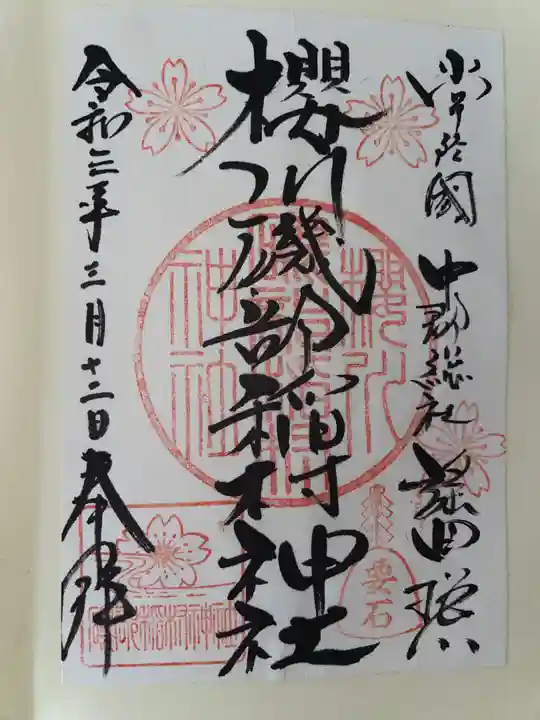 常陸國 中郡総社
櫻川磯部稲村神社
令和三年三月十二日 奉拝
要石